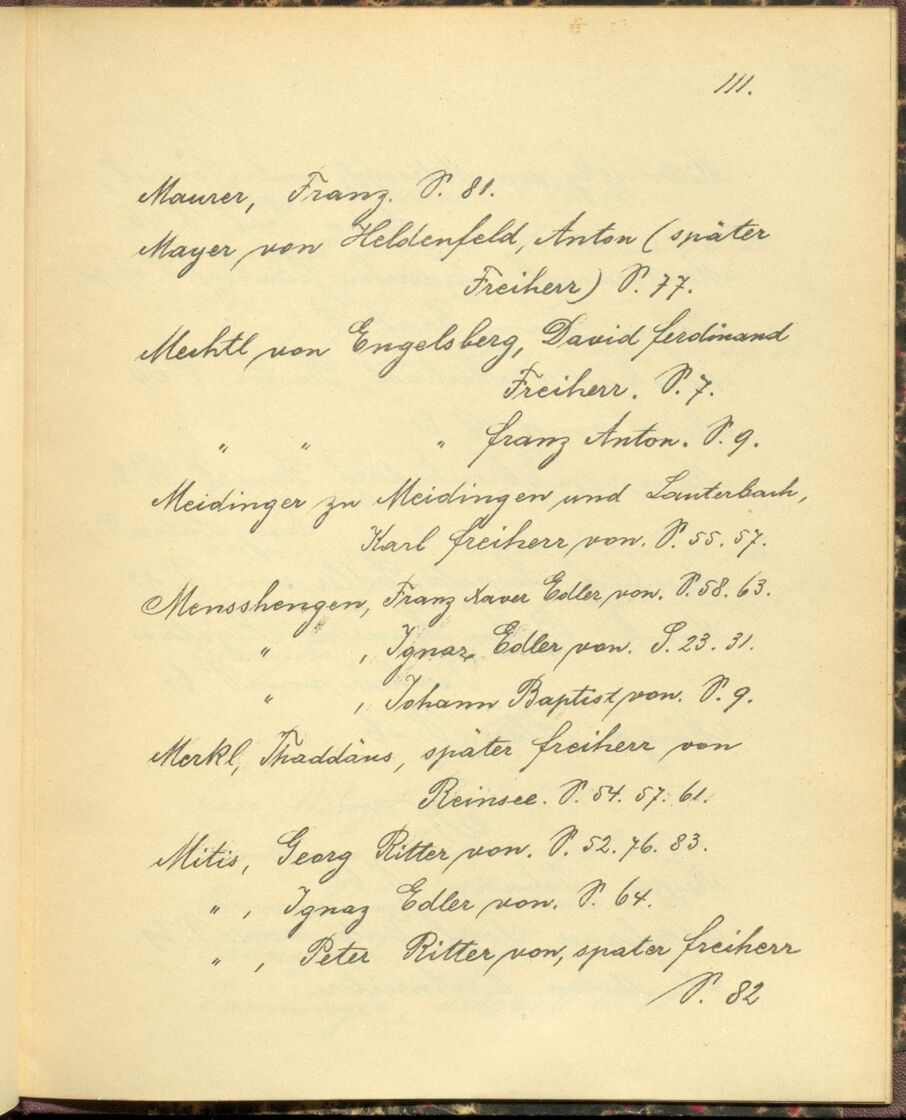 111.
Maurer, Franz. S. 81.
Mayer von Heldenfeld, Anton (später
Freiherr) S. 77.
Mechtl von Engelsberg, David ferdinand
Freiherr. S. 7.
" " " franz Anton. S. 9.
Meidinger zu Meidingen und Lauterbach,
Karl freiherr von. S. 55. 57.
Mensshengen, Franz Xaver Edler von. S. 58. 63.
" , Ignaz Edler von. S. 23. 31.
" , Johann Baptist von. S. 9.
Merkl, Thaddäus, später freiherr von
Reinsee. S. 54. 57. 61.
Mitis, Georg Ritter von. S. 52. 76. 83.
" , Ignaz Edler von. S. 64.
" , Peter Ritter von, spater freiherr
S. 82